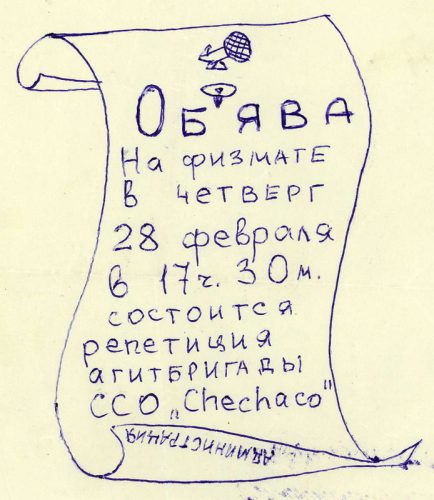 Об'ява
На физмате
в четверг
28 февраля
в 17ч. 30м.
состоится
репетиция
агитбригады
ССО „Chechaco"
Администрация